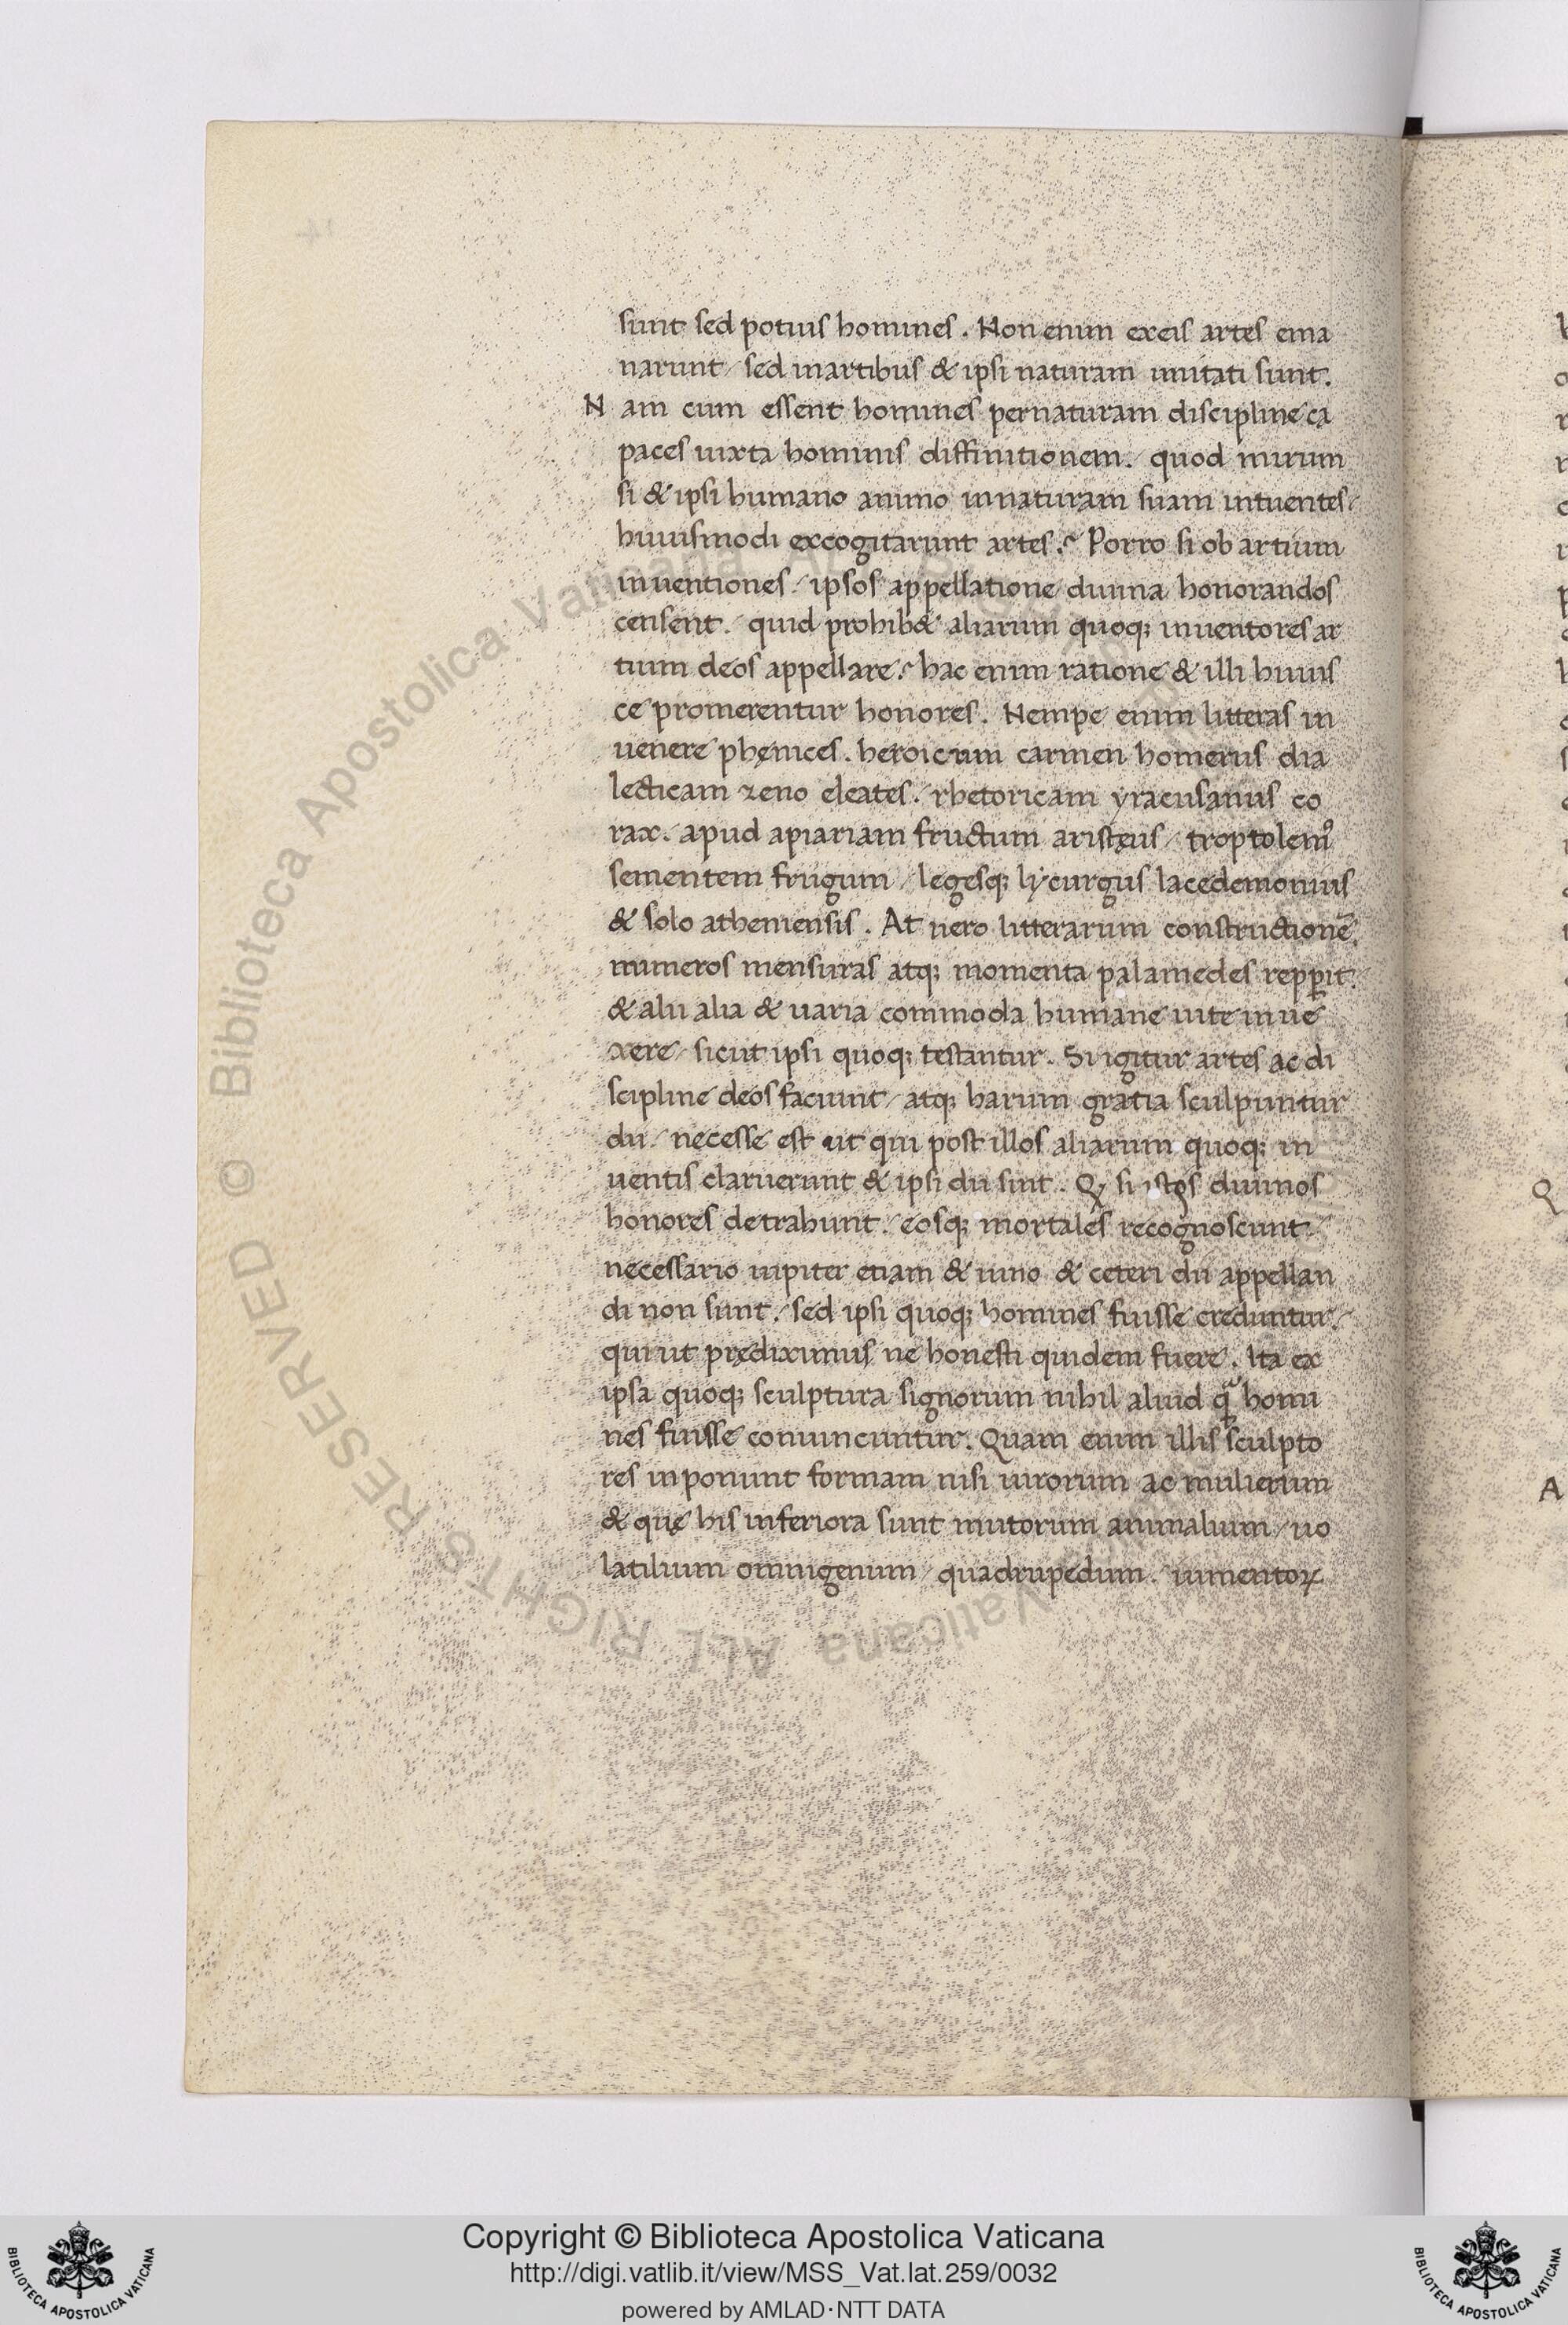 sunt sed potius homines. Non enim exeis artes ema
narunt / sed inartibus & ipsi naturam imitati sunt.
Nam cum essent homines pernaturam discipline ca
paces iuxta hominis diffinitionem. quod mirum
si & ipsi humano animo innaturam suam intuentes /
huiusmodi excogitarunt artes? Porro si ob artium
inuentiones / ipsos appellatione diuina honorandos
censent. quid prohib& aliarum quoq; inuentores ar
tium deos appellare? hac enim ratione & illi huius
ce promerentur honores. Nempe enim litteras in
uenere phęnices. heroicum carmen homerus dia
lecticam zeno eleates. rhetoricam yracusanus co
rax. apud apiariam fructum aristęus / troptolemꝰ
sementem frugum / legesq; lycurgus lacedemonius
& solo atheniensis. At uero litterarum constructionē.
numeros mensuras atq; momenta palamedes repperit.
& alii alia & uaria commoda humane uite inue
xere / sicut ipsi quoq; testantur. Si igitur artes ac di
scipline deos faciunt / atq; harum gratia sculpuntur
dii / necesse est ut qui post illos aliarum quoq; in
uentis claruerunt & ipsi dii sint. Qꝫ si istos diuinos
honores detrahunt / eosq; mortales recognoscunt /
necessario iupiter etiam & iuno & ceteri dii appellan
di non sunt / sed ipsi quoq; homines fuisse creduntur /
qui ut prędiximus ne honesti quidem fuere. Ita ex
ipsa quoq; sculptura signorum nihil aliud q̃ homi
nes fuisse conuincuntur. Quam enim illis sculpto
res inponunt formam nisi uirorum ac mulierum
& quę his inferiora sunt mutorum animalium / uo
latilium omnigenum / quadrupedum / iumentoꝝ
Q
A
© Biblioteca Apostolica Vaticana ALL RIGHTS RESERVED
Copyright © Biblioteca Apostolica Vaticana
http://digi.vatlib.it/view/MSS_Vat.lat.259/0032
powered by AMLAD·NTT DATA
BIBLIOTECA APOSTOLICA VATICANA
BIBLIOTECA APOSTOLICA VATICANA